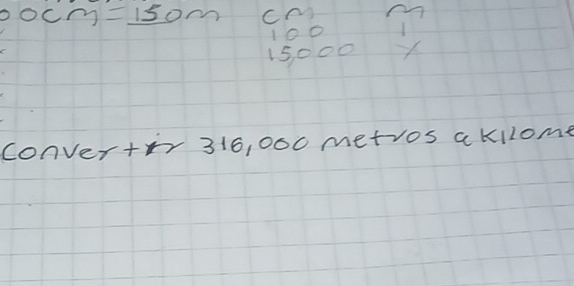 00cm = 150m cm m
100 1
15,000 x
convertir 316,000 metros a kilome